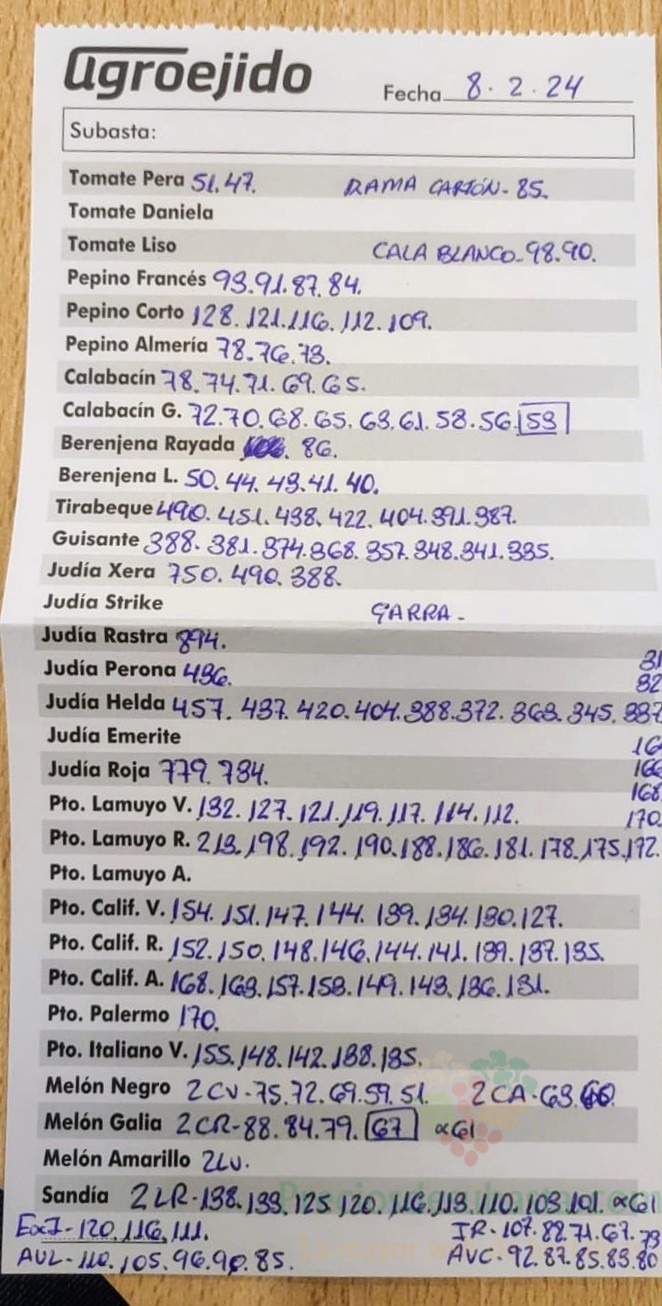 agroejido
Fecha 8.2.24
Subasta:
Tomate Pera 51.47. RAMA CARTÓN-85.
Tomate Daniela
Tomate Liso CALA BLANCO-98.90.
Pepino Francés 93.91.87.84.
Pepino Corto 128.121.116.112.109.
Pepino Almería 78.76.73.
Calabacín 78.74.71.69.65.
Calabacín G. 72.70.68.65.63.61.58.56.53
Berenjena Rayada 86.
Berenjena L. 50.44.43.41.40.
Tirabeque 490.451.438.422.404.391.387.
Guisante 388.381.374.368.357.348.341.335.
Judía Xera 750.490.388.
Judía Strike GARRA-
Judía Rastra 894.
Judía Perona 436. 31
32
Judía Helda 457.437.420.404.388.372.363.345.337
Judía Emerite 16
Judía Roja 779.734. 166
168
Pto. Lamuyo V. 132.127.121.119.117.114.112. 170
Pto. Lamuyo R. 213.198.192.190.188.186.181.178.175.172.
Pto. Lamuyo A.
Pto. Calif. V. 154.151.147.144.139.134.130.127.
Pto. Calif. R. 152.150.148.146.144.141.139.137.135.
Pto. Calif. A. 168.163.157.153.149.143.136.131.
Pto. Palermo 170.
Pto. Italiano V. 155.148.142.138.135.
Melón Negro 2CV-75.72.69.59.51. 2CA-63.60.
Melón Galia 2CR-88.84.79.67 ∝G1
Melón Amarillo 2LV.
Sandía 2LR-138.133.125.120.116.113.110.103.101.∝G1
ExI-120.116.111. IR-107.88.71.67.73
AUL-110.105.96.90.85. AVC-92.87.85.83.80